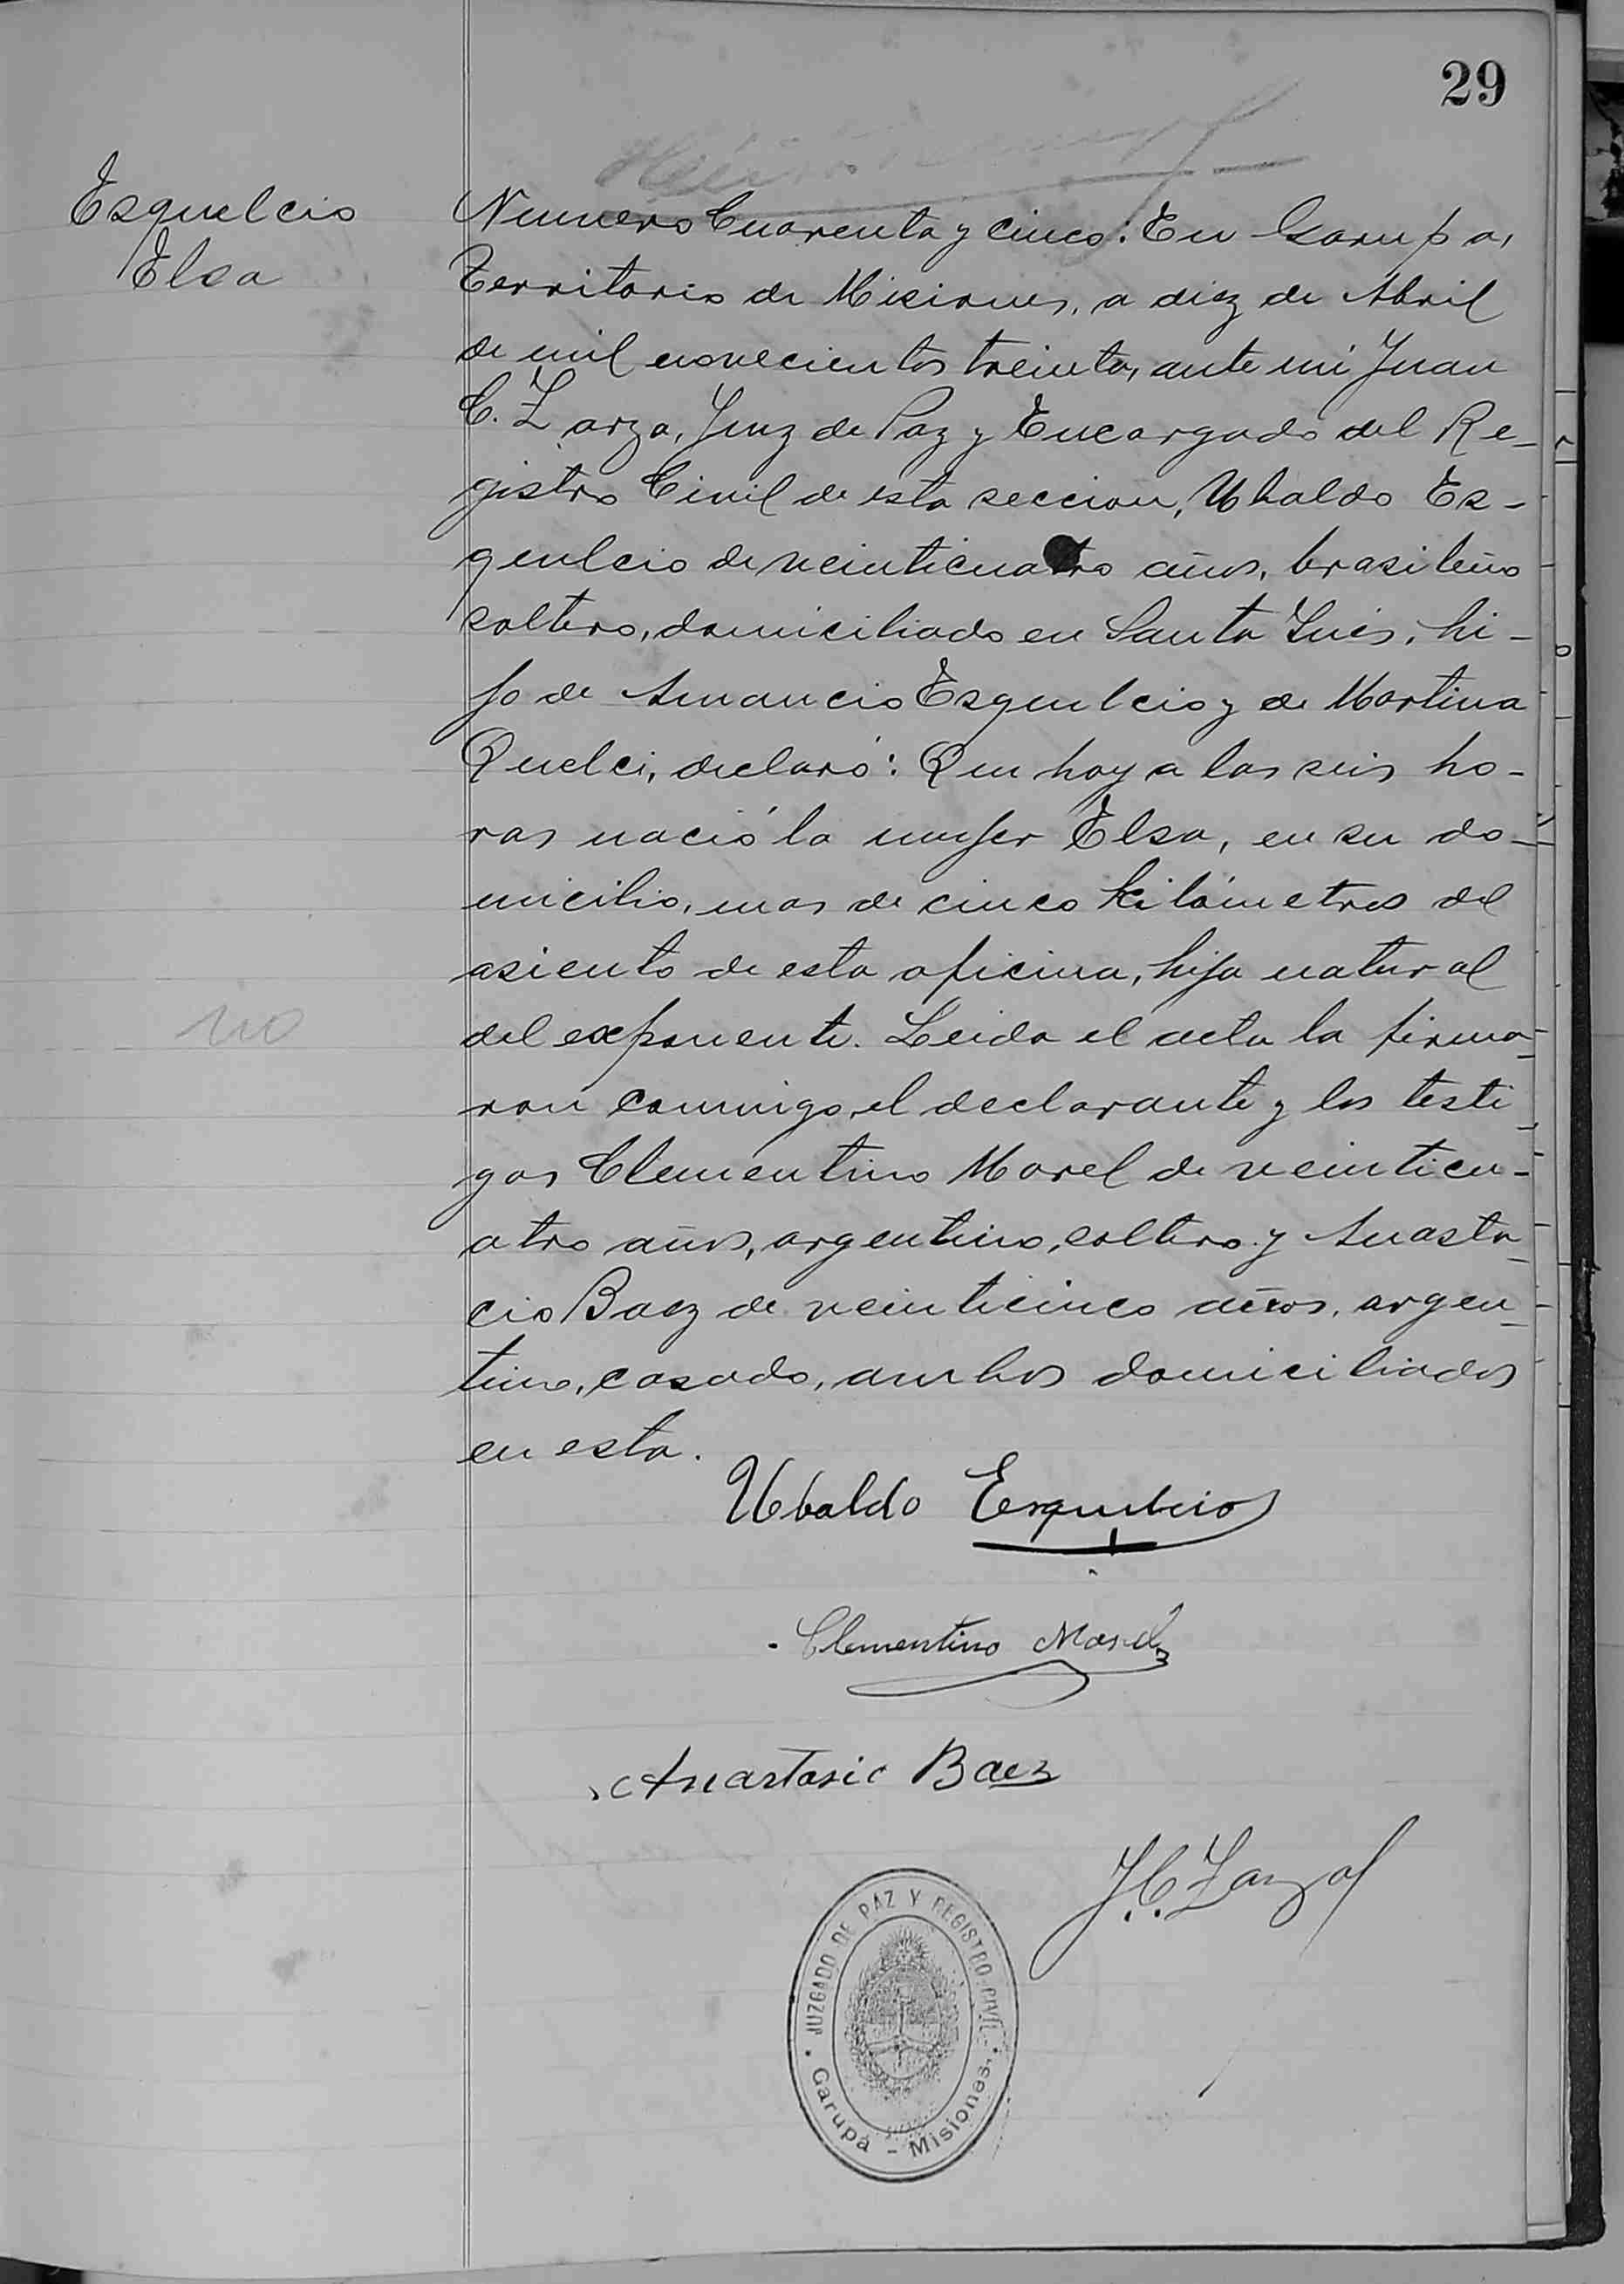 29
Esquelcio
Elsa
Numero Cuarenta y cinco: En Garupa,
Territorio de Misiones, a diez de Abril
de mil novecientos treinta, ante mi Juan
C. Zarza, Juez de Paz y Encargado del Re-
gistro Civil de esta seccion, Ubaldo Es-
quelcio de veinticuatro años, brasileño
soltero, domiciliado en Santa Inés, hi-
jo de Amancio Esquelcio y de Martina
Quelci, declaró: Que hoy a las seis ho-
ras nació la mujer Elsa, en su do-
micilio, mas de cinco kilómetros del
asiento de esta oficina, hija natural
del exponente. Leida el acta la firma-
ron conmigo, el declarante y los testi-
gos Clementino Morel de veinticu-
atro años, argentino, soltero y Anasta-
cio Baez de veinticinco años, argen-
tino, casado, ambos domiciliados
en esta.
no
Ubaldo Esquelcio
Clementino Morel
Anastasio Baez
J. C. Zarza
JUZGADO DE PAZ Y REGISTRO CIVIL
Garupá - Misiones.